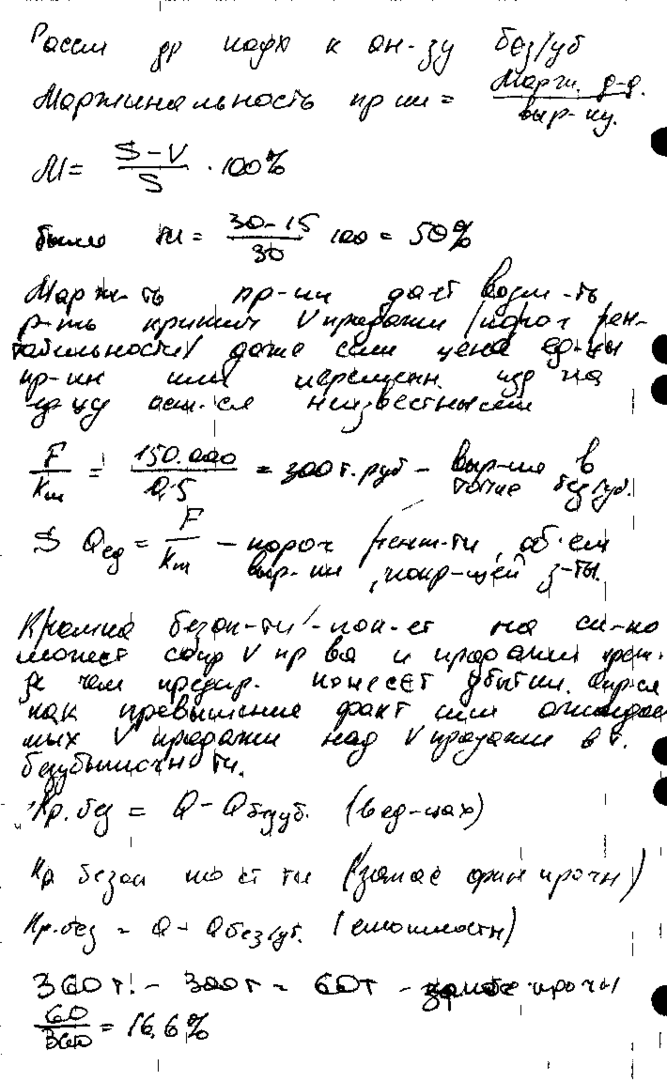 Рассм др подх к ан-зу без/уб
Маржинальность пр-ии = Марж. д-д. / выр-ку.
М = (S-V)/S · 100%
было m = (30-15)/30 100 = 50%
Марж-ть пр-ии дает возм-ть
р-ть критич V продажи (порог рен-
табельности) даже если цена ед-цы
пр-ии или перемен. изд на
ед-цу ост-ся неизвестными
F/Km = 150.000/0,5 = 300 т. руб – выр-ка в точке без/уб.
S Qед = F/Km – порог рент-ти, объем
выр-ки, покр-щей з-ты.
Кромка безоп-ти – пок-ет на ск-ко
может сокр V пр-ва и продажи преж-
де чем предпр. понесет убытки. Опр-ся
как превышение факт или ожидае
мых V продажи над V продажи в т.
безубыточности.
Кр. без = Q - Qбезуб. (в ед-цах)
Кр безоп ности (запас фин прочн)
Кр. без = Q - Qбез/уб. (стоимостн)
360 т. - 300 т = 60 т - запас прочн
60/360 = 16,6%